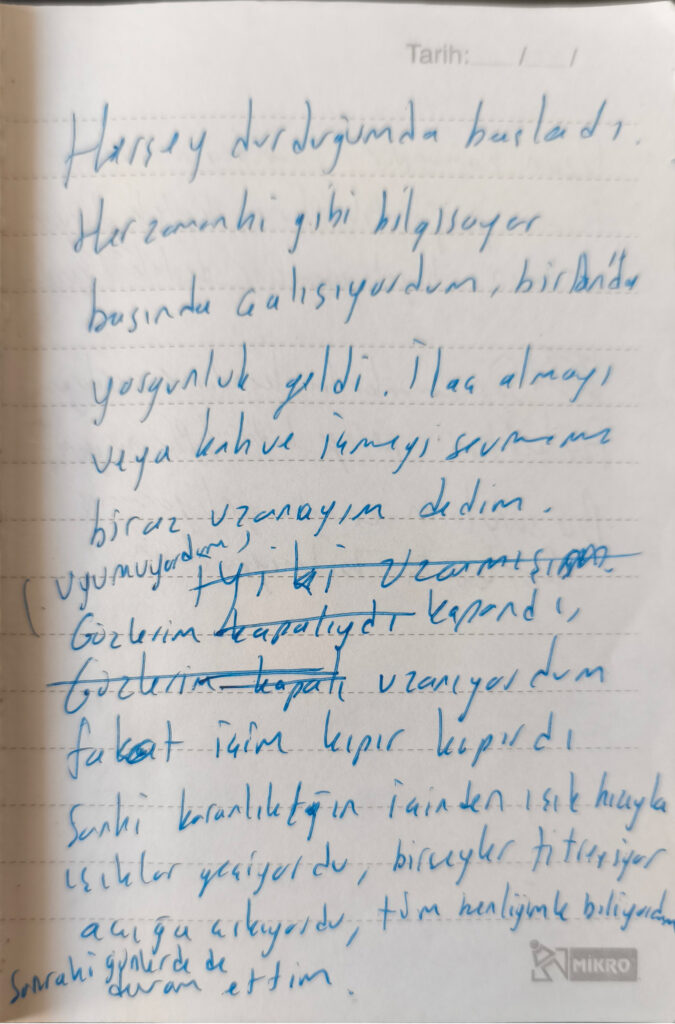 Tarih: / /
Herşey durduğumda başladı.
Her zamanki gibi bilgisayar
başında çalışıyordum, bir anda
yorgunluk geldi. İlaç almayı
veya kahve içmeyi sevmem
biraz uzanayım dedim.
uyumuyordum, İyi ki uzanmışım.
Gözlerim kapalıydı kapandı,
Gözlerim kapalı uzanıyordum
fakat içim kıpır kıpırdı
Sanki karanlığın içinden ışık hızıyla
ışıklar geçiyordu, birşeyler titreşiyor
açığa çıkıyordu, tüm benliğimle biliyordum
Sonraki günlerde de
devam ettim.
MIKRO